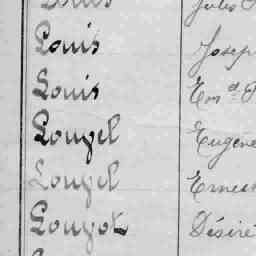 Louis Jules
Louis Joseph
Louis Em d. P
Louyel Eugène
Louyel Ernest
Louyot Désiré